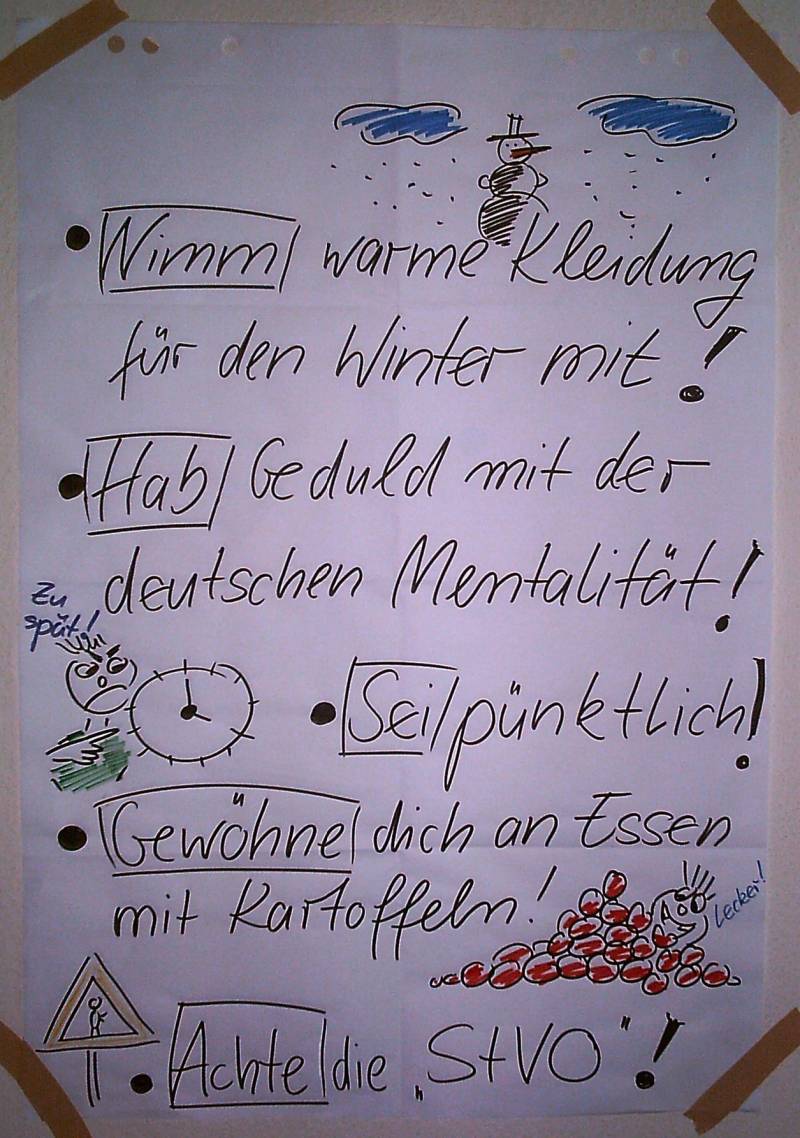 • Nimm warme Kleidung
für den Winter mit!
• Hab Geduld mit der
deutschen Mentalität!
Zu
spät!
• Sei pünktlich!
• Gewöhne dich an Essen
mit Kartoffeln!
Lecker!
• Achte die „StVO"!